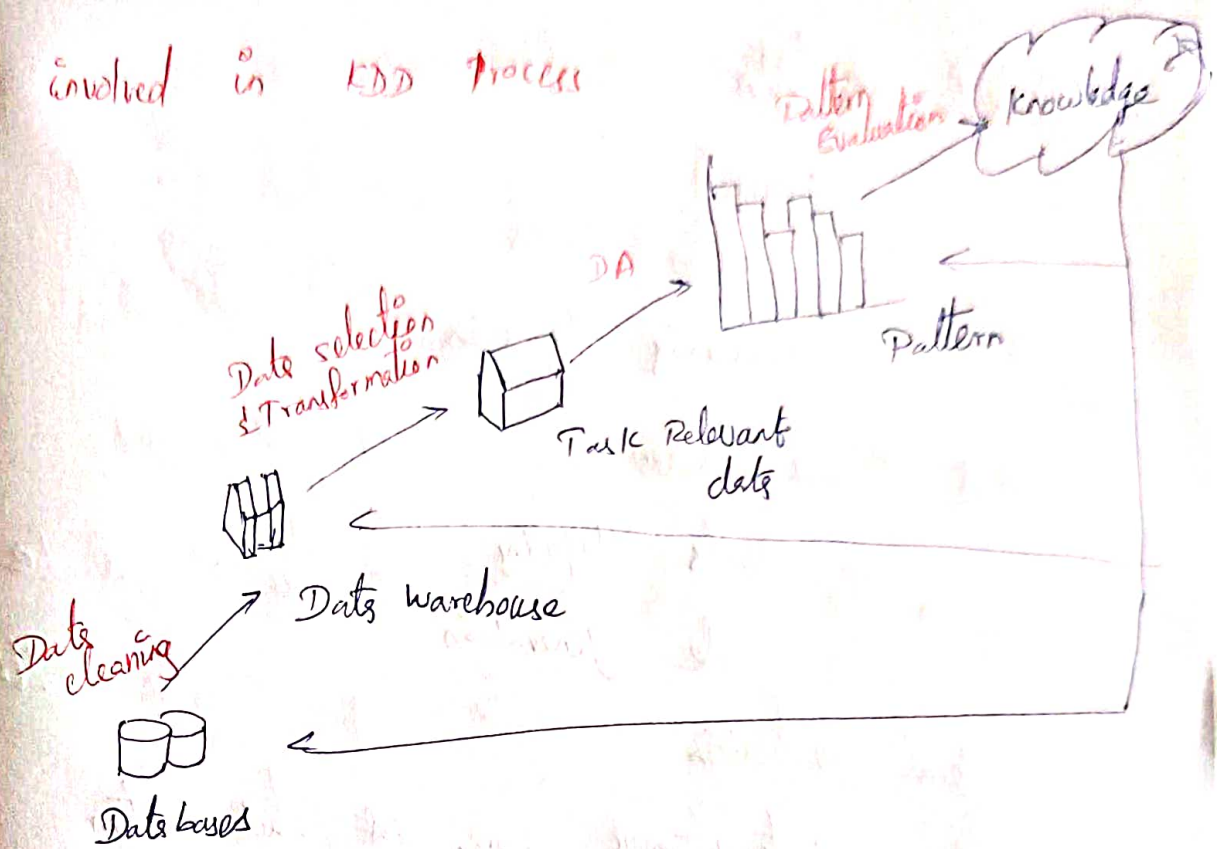 involved in KDD Process
Pattern
Evaluation
Knowledge
DA
Pattern
Data selection
& Transformation
Task Relevant
data
Data warehouse
Data
cleaning
Databases